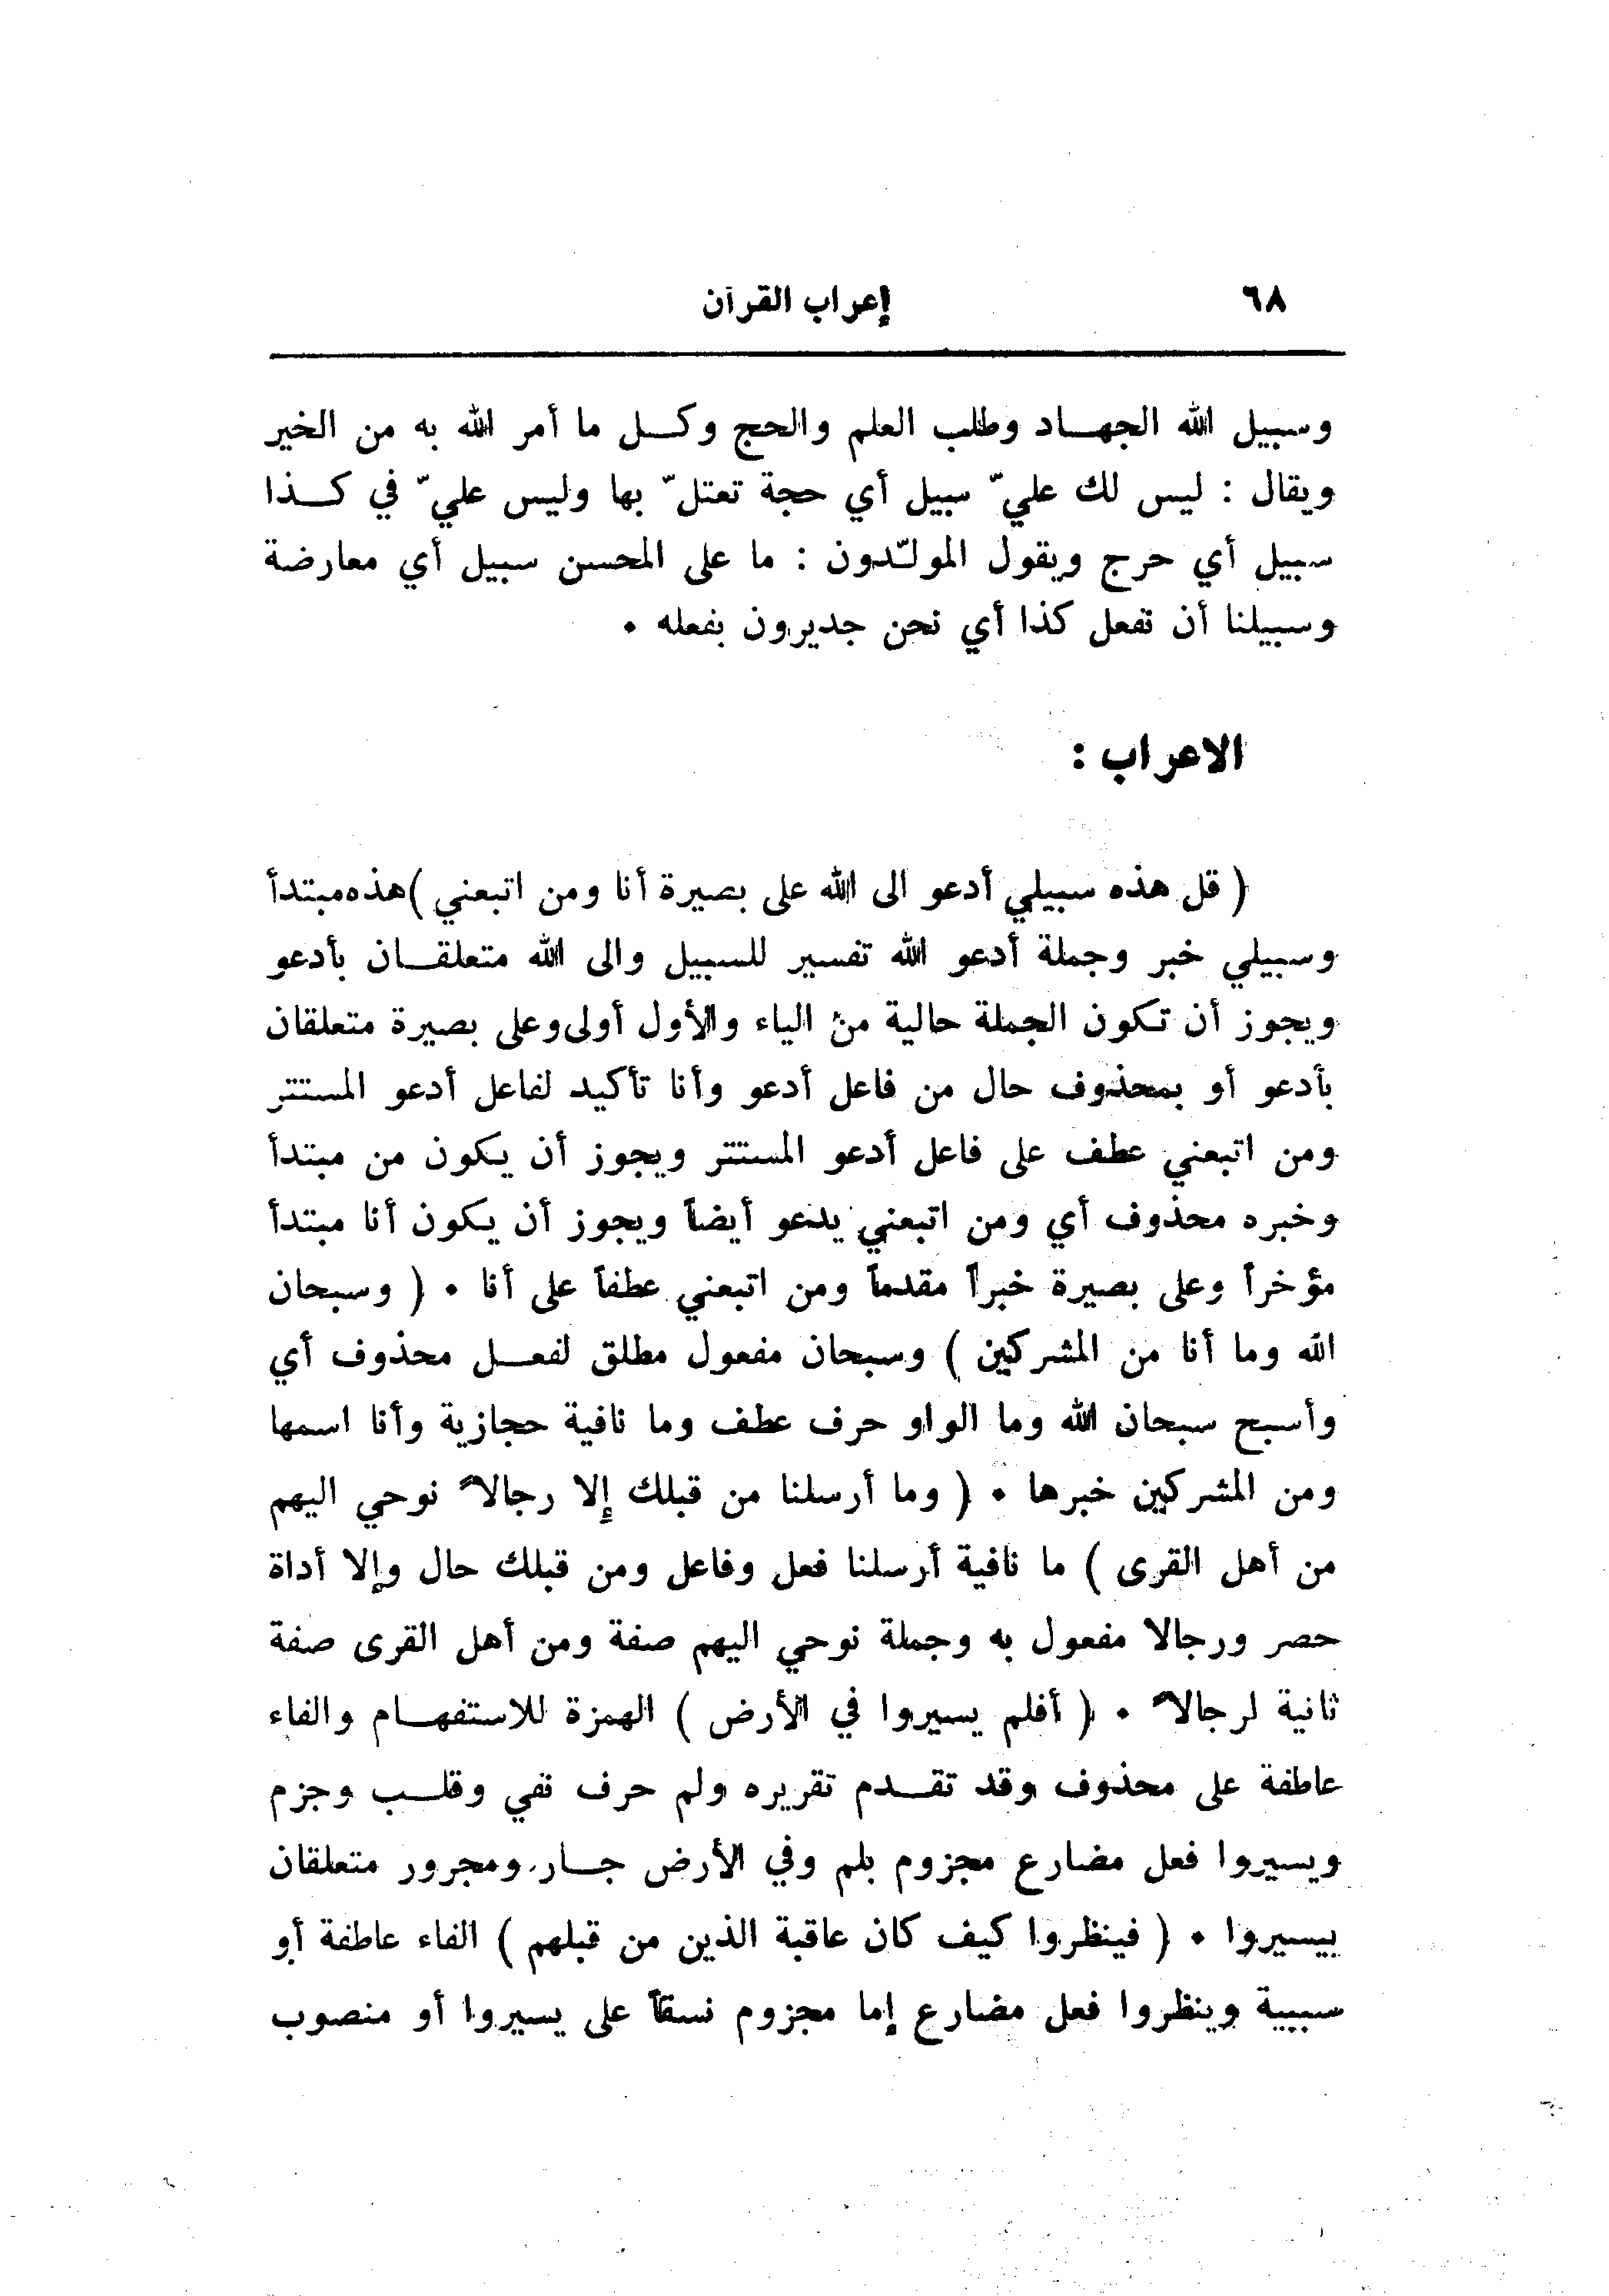 ٦٨ إعراب القرآن
وسبيل الله الجهاد وطلب العلم والحج وكل ما أمر الله به من الخير
ويقال : ليس لك عليّ سبيل أي حجة تعتلّ بها وليس عليّ في كذا
سبيل أي حرج ويقول المولّدون : ما على المحسن سبيل أي معارضة
وسبيلنا أن تفعل كذا أي نحن جديرون بفعله .
الاعراب :
( قل هذه سبيلي أدعو الى الله على بصيرة أنا ومن اتبعني ) هذه مبتدأ
وسبيلي خبر وجملة أدعو الله تفسير للسبيل والى الله متعلقان بأدعو
ويجوز أن تكون الجملة حالية من الياء والأول أولى وعلى بصيرة متعلقان
بأدعو أو بمحذوف حال من فاعل أدعو وأنا تأكيد لفاعل أدعو المستتر
ومن اتبعني عطف على فاعل أدعو المستتر ويجوز أن يكون من مبتدأ
وخبره محذوف أي ومن اتبعني يدعو أيضاً ويجوز أن يكون أنا مبتدأ
مؤخراً وعلى بصيرة خبراً مقدماً ومن اتبعني عطفاً على أنا . ( وسبحان
الله وما أنا من المشركين ) وسبحان مفعول مطلق لفعل محذوف أي
وأسبح سبحان الله وما الواو حرف عطف وما نافية حجازية وأنا اسمها
ومن المشركين خبرها . ( وما أرسلنا من قبلك إلا رجالاً نوحي اليهم
من أهل القرى ) ما نافية أرسلنا فعل وفاعل ومن قبلك حال وإلا أداة
حصر ورجالا مفعول به وجملة نوحي اليهم صفة ومن أهل القرى صفة
ثانية لرجالاً . ( أفلم يسيروا في الأرض ) الهمزة للاستفهام والفاء
عاطفة على محذوف وقد تقدم تقريره ولم حرف نفي وقلب وجزم
ويسيروا فعل مضارع مجزوم بلم وفي الأرض جار ومجرور متعلقان
بيسيروا . ( فينظروا كيف كان عاقبة الذين من قبلهم ) الفاء عاطفة أو
سببية وينظروا فعل مضارع إما مجزوم نسقاً على يسيروا أو منصوب